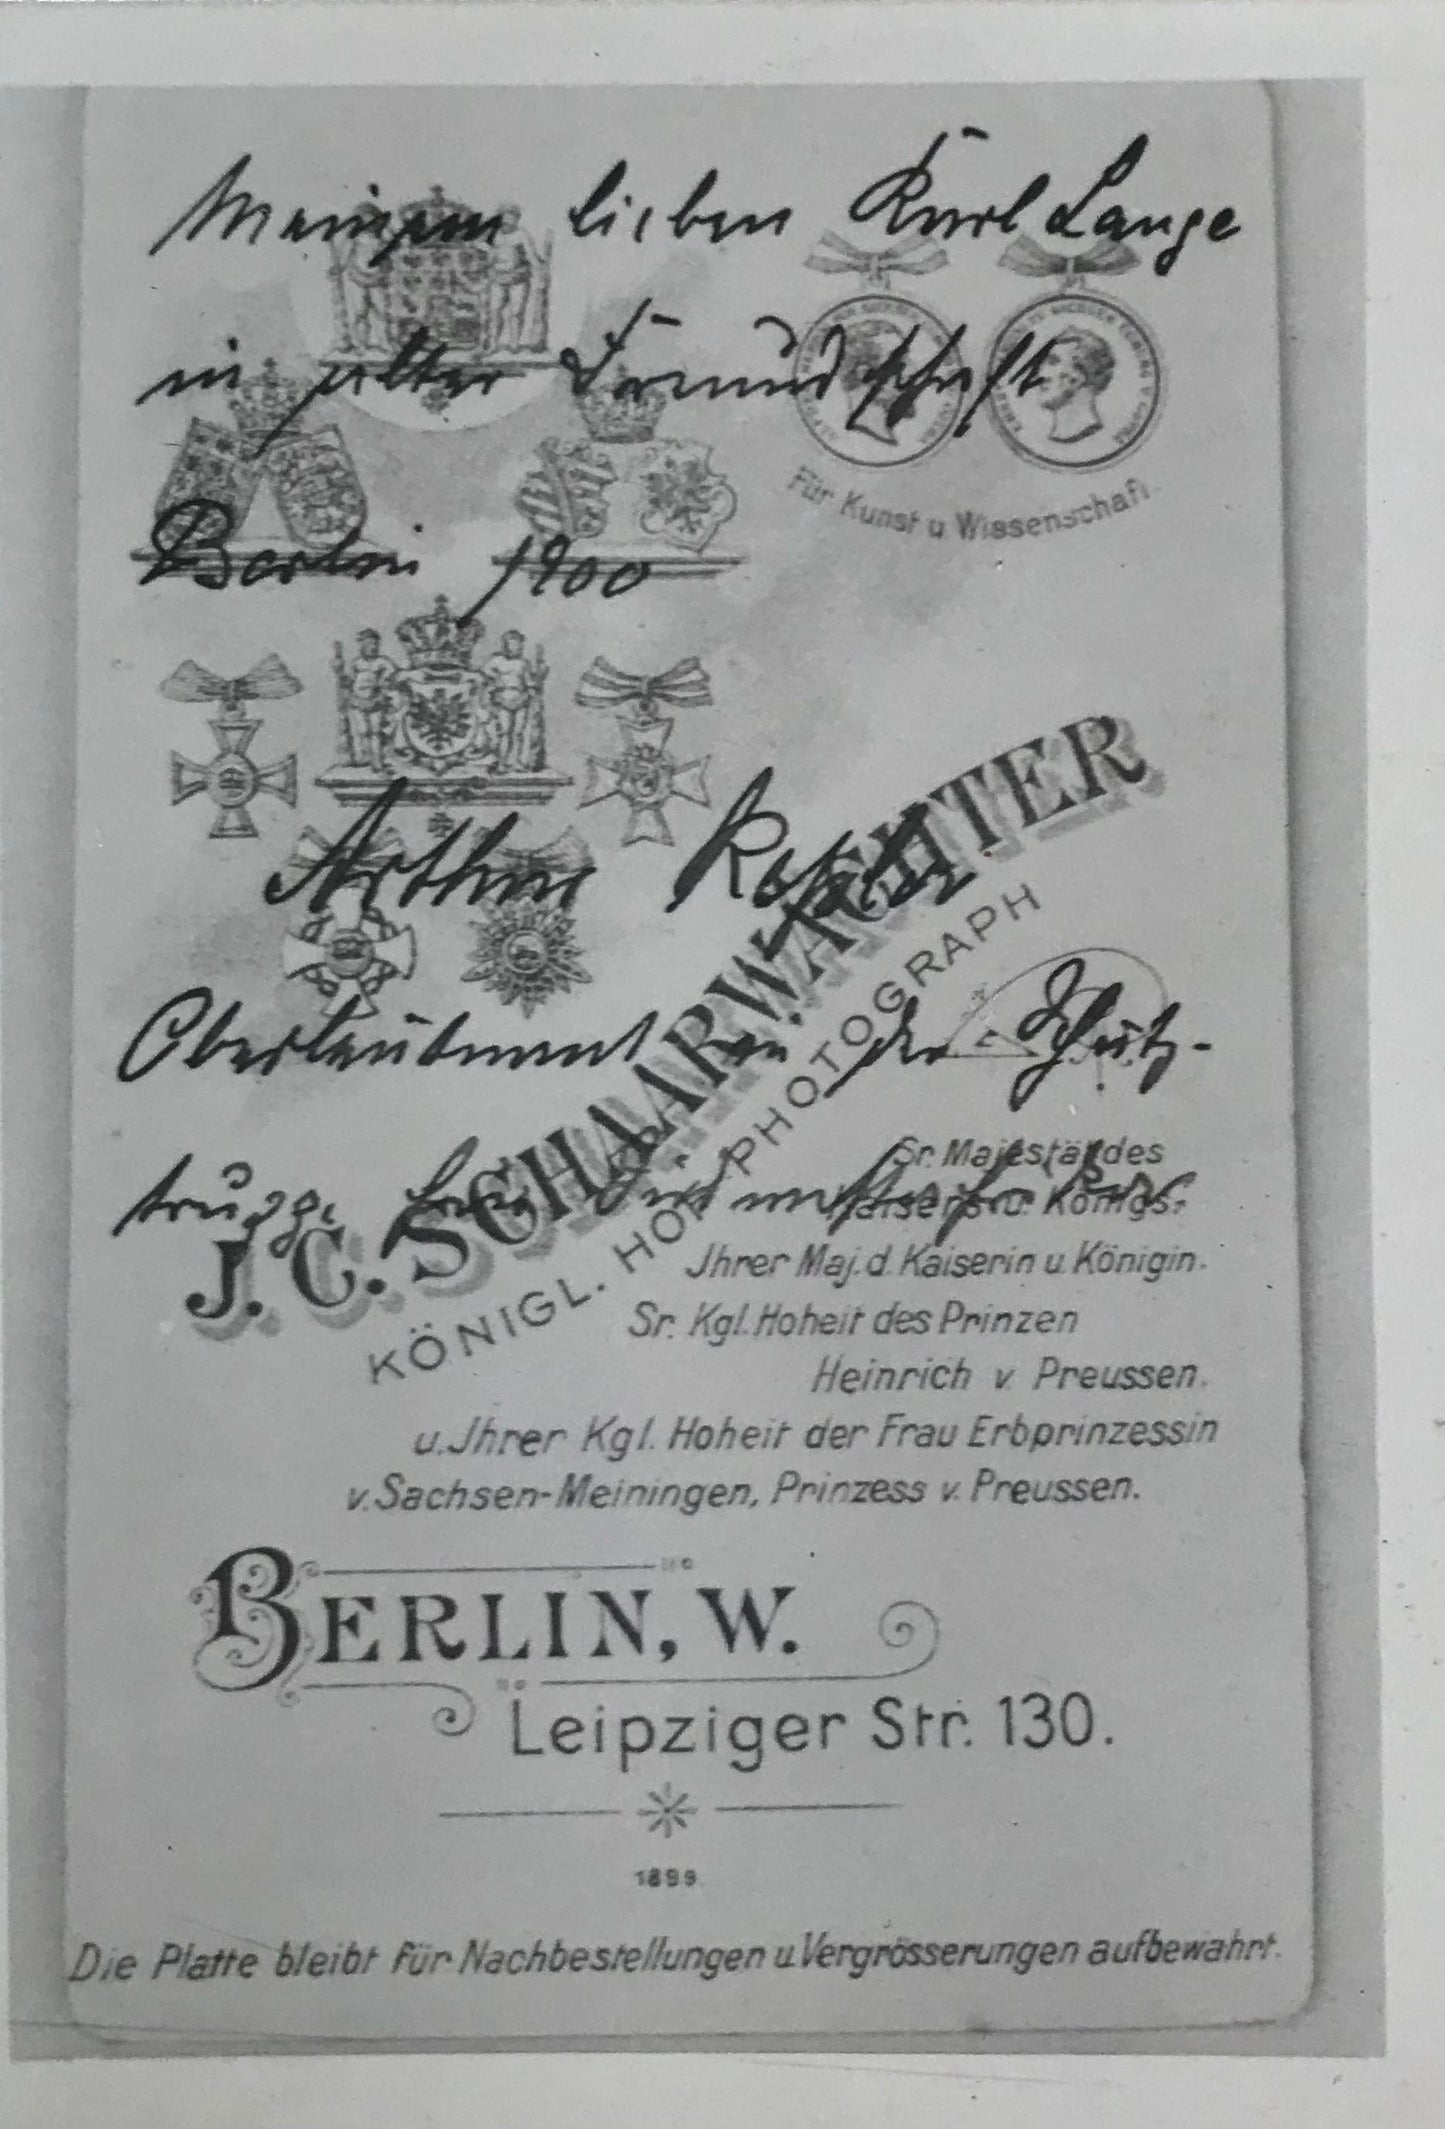 Meinem lieben Kurt Lange
in alter Freundschaft
Für Kunst u Wissenschaft.
Berlin 1900
Arthur
Oberleutnant in der Schutz-
truppe für Südwestafrika.
J. C. SCHAARWÄCHTER
KÖNIGL. HOF-PHOTOGRAPH
Sr. Majestät des
Kaisers u. Königs.
Jhrer Maj. d. Kaiserin u. Königin.
Sr. Kgl. Hoheit des Prinzen
Heinrich v. Preussen.
u. Jhrer Kgl. Hoheit der Frau Erbprinzessin
v. Sachsen-Meiningen, Prinzess v. Preussen.
BERLIN, W.
Leipziger Str. 130.
1899
Die Platte bleibt für Nachbestellungen u. Vergrösserungen aufbewahrt.